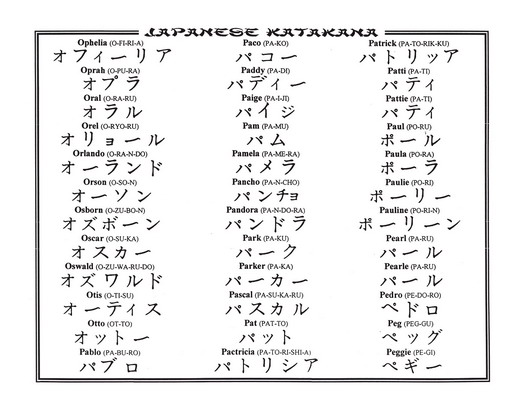 JAPANESE KATAKANA
Ophelia (O-FI-RI-A)
オフィーリア
Oprah (O-PU-RA)
オプラ
Oral (O-RA-RU)
オラル
Orel (O-RYO-RU)
オリョール
Orlando (O-RA-N-DO)
オーランド
Orson (O-SO-N)
オーソン
Osborn (O-ZU-BO-N)
オズボーン
Oscar (O-SU-KA)
オスカー
Oswald (O-ZU-WA-RU-DO)
オズワルド
Otis (O-TI-SU)
オーティス
Otto (OT-TO)
オットー
Pablo (PA-BU-RO)
パブロ
Paco (PA-KO)
パコー
Paddy (PA-DI)
パディー
Paige (PA-I-JI)
パイジ
Pam (PA-MU)
パム
Pamela (PA-ME-RA)
パメラ
Pancho (PA-N-CHO)
パンチョ
Pandora (PA-N-DO-RA)
パンドラ
Park (PA-KU)
パーク
Parker (PA-KA)
パーカー
Pascal (PA-SU-KA-RU)
パスカル
Pat (PAT-TO)
パット
Pactricia (PA-TO-RI-SHI-A)
パトリシア
Patrick (PA-TO-RIK-KU)
パトリッア
Patti (PA-TI)
パティ
Pattie (PA-TI)
パティ
Paul (PO-RU)
ポール
Paula (PO-RA)
ポーラ
Paulie (PO-RI)
ポーリー
Pauline (PO-RI-N)
ポーリーン
Pearl (PA-RU)
パール
Pearle (PA-RU)
パール
Pedro (PE-DO-RO)
ペドロ
Peg (PEG-GU)
ペッグ
Peggie (PE-GI)
ペギー